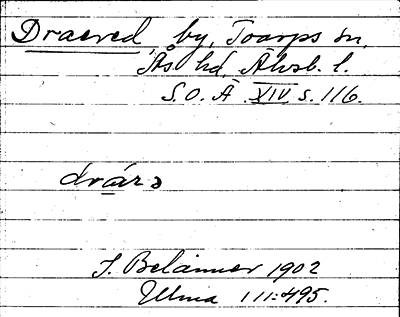 Draered, by, Toarps sn,
Ås hd, Älvsb. l.
S.O.Ä XIV s. 116.
drárə
J. Belanner 1902
Ulma 111:495.